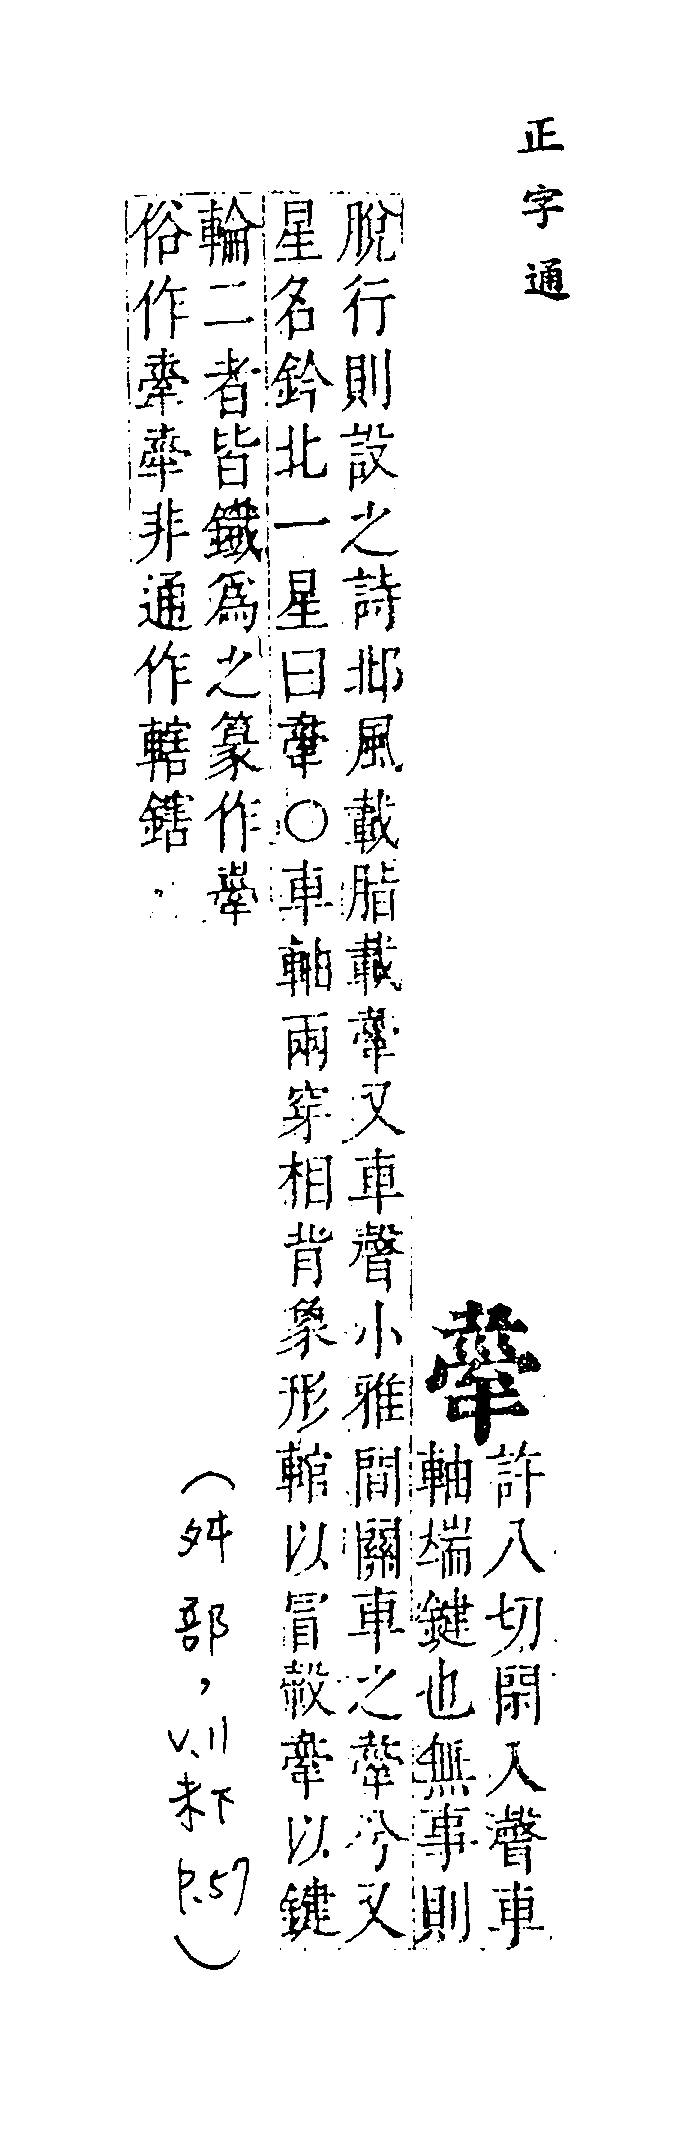 正字通
舝
許八切閑入聲車
軸端鍵也無事則
脫行則設之詩邶風載脂載舝又車聲小雅間關車之舝兮又
星名鈐北一星曰舝○車軸兩穿相背象形輨以冒轂舝以鍵
輪二者皆鐵爲之篆作舝
俗作非通作轄鎋
(舛部,V.11未下P.57)